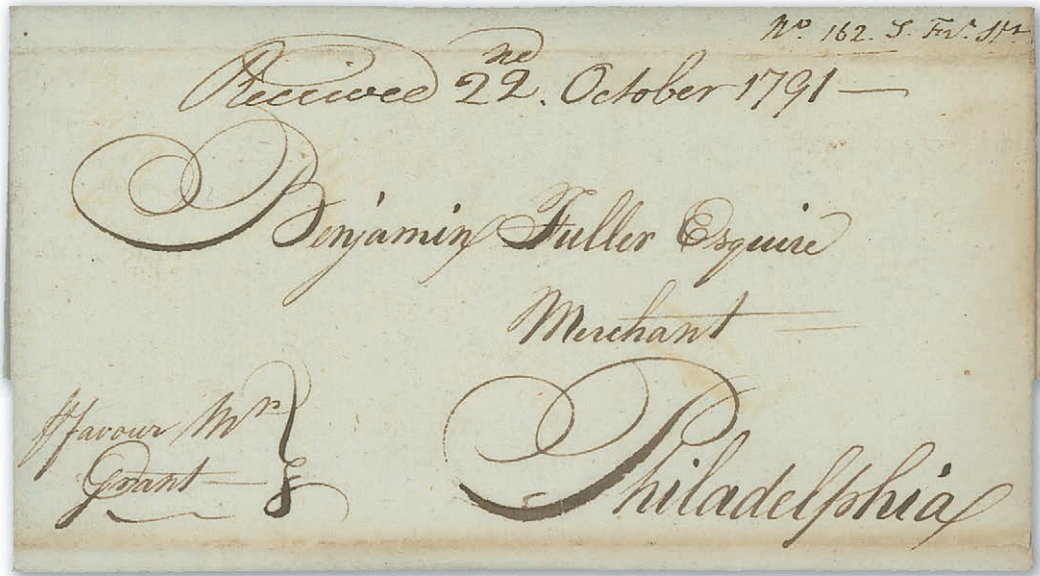 No. 162. S. Frt. Str
Received 22nd. October 1791
Benjamin Fuller Esquire
Merchant
Philadelphia
ffavour Mrs
Grant